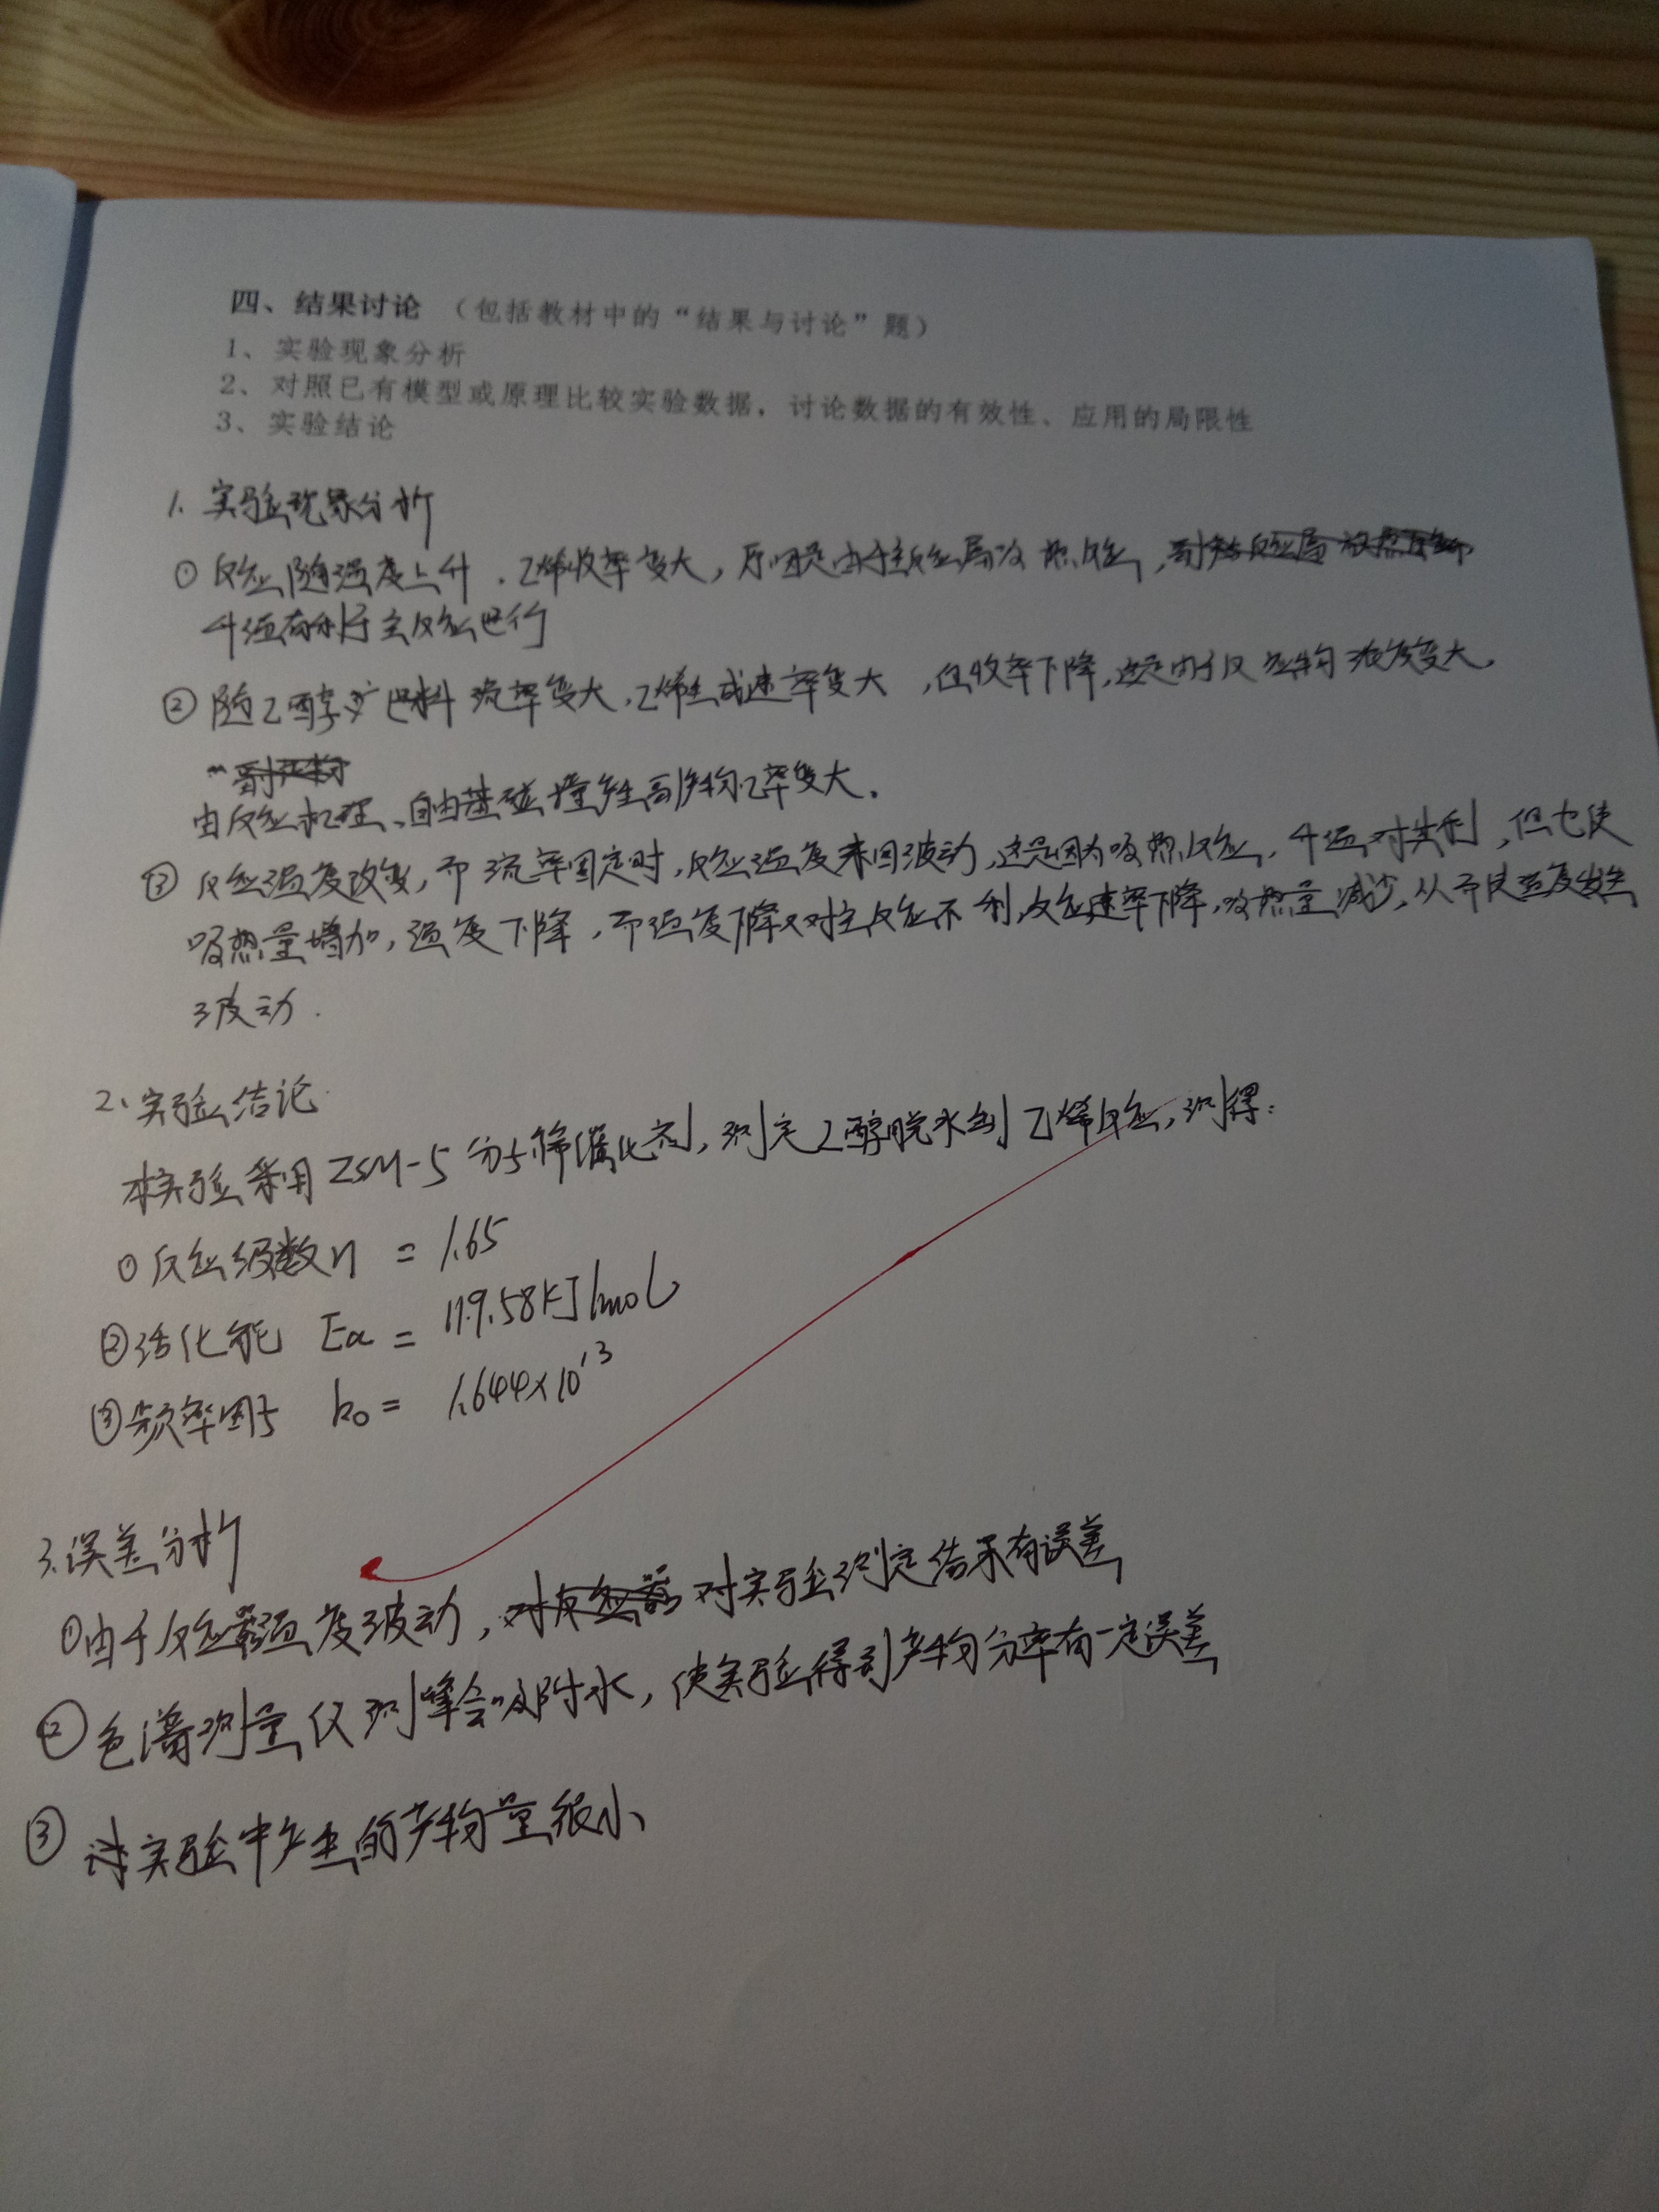 四、结果讨论 （包括教材中的“结果与讨论”题）
1、实验现象分析
2、对照已有模型或原理比较实验数据，讨论数据的有效性、应用的局限性
3、实验结论
1. 实验现象分析
① 反应随温度上升，乙烯收率变大，原因是由于主反应属吸热反应，
升温有利于主反应进行
② 随乙醇进料流率变大，乙烯生成速率变大，但收率下降，这是由于反应物浓度变大，
由反应机理、自由基碰撞产生副产物几率变大。
③ 反应温度改变，而流率固定时，反应温度来回波动，这是因为吸热反应，升温对其有利，但也使
吸热量增加，温度下降，而温度下降又对主反应不利，反应速率下降，吸热量减少，从而使温度发生
波动.
2、实验结论
本实验采用ZSM-5分子筛催化剂，测定乙醇脱水制乙烯反应，测得：
①反应级数n = 1.65
②活化能 Ea = 119.58KJ/mol
③频率因子 k₀ = 1.644×10¹³
3.误差分析
①由于反应器温度波动，对实验测定结果有误差
② 色谱测量仪测峰会吸附水，使实验得到产物分率有一定误差
③ 实验中产生的产物量很小